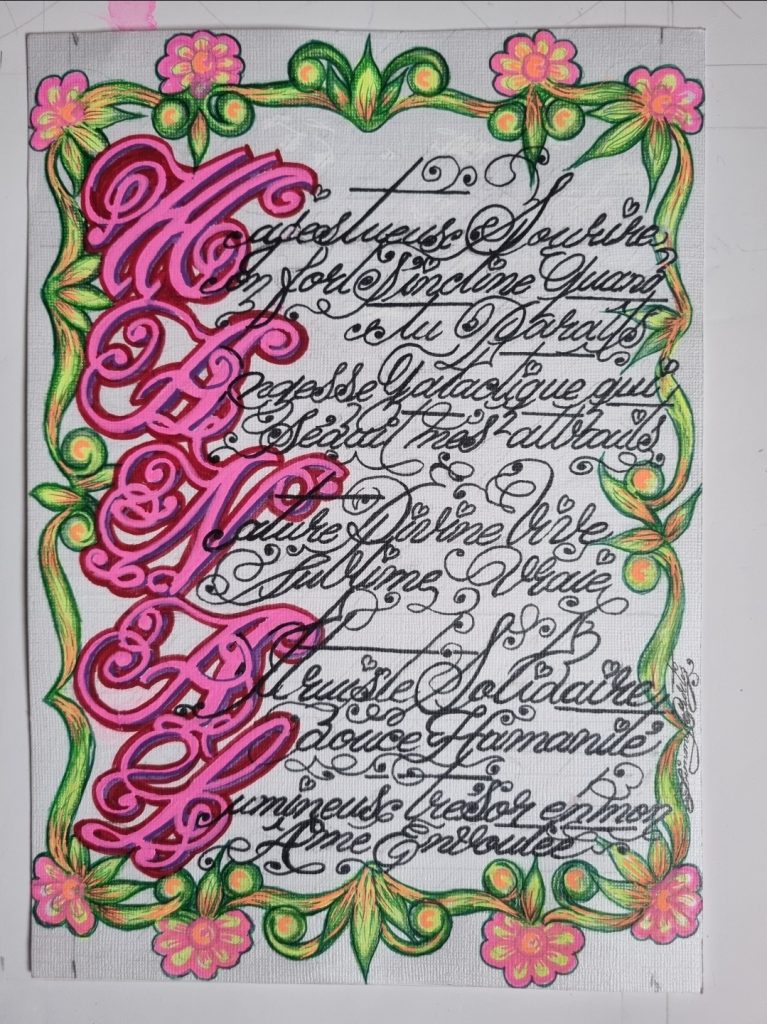 Majestueuse Sourire
fort S'incline Quand
tu Parais
Galactique qui
mes attraits
Nature Divine Vive
Sublime Vraie
Altruiste Solidaire
douce Humanité
Lumineux trésor en mon
Âme Envoutée